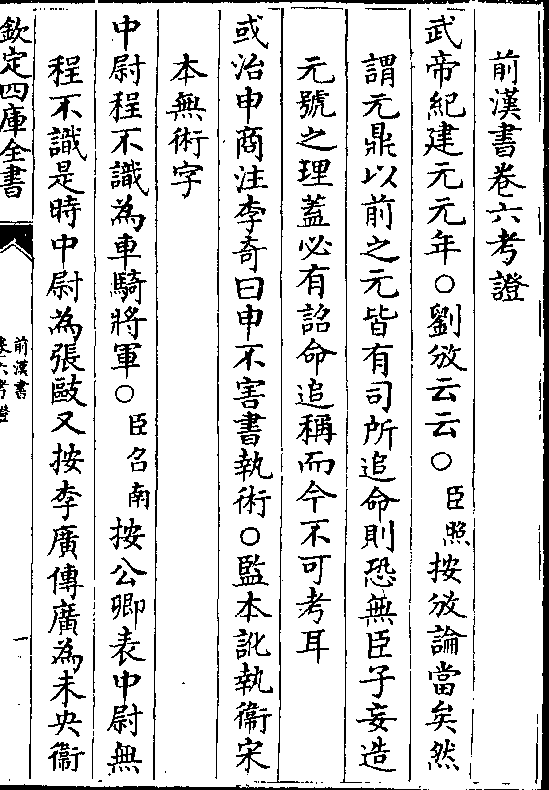 前漢書卷六考證
武帝紀建元元年○劉攽云云○臣照按攽論當矣然
謂元鼎以前之元皆有司所追命則恐無臣子妄造
元號之理蓋必有詔命追稱而今不可考耳
或治申商注李奇曰申不害書執術○監本訛執衞宋
本無術字
中尉程不識為車騎將軍○臣召南按公卿表中尉無
程不識是時中尉為張敺又按李廣傳廣為未央衞
欽定四庫全書
前漢書
卷六考證
一